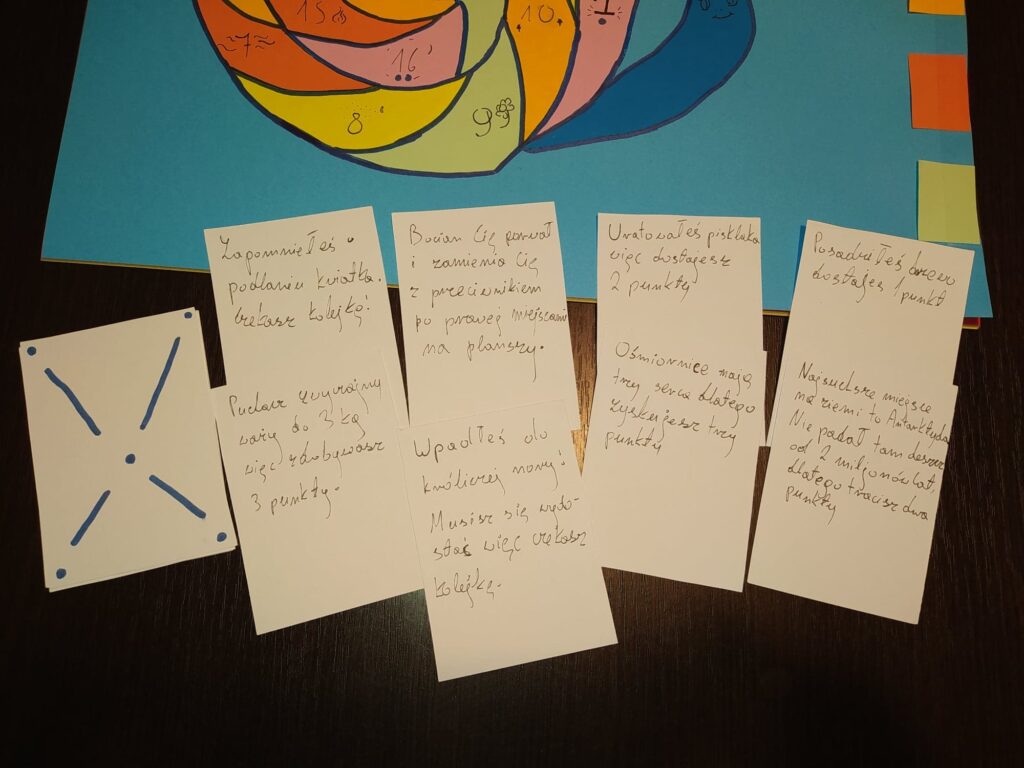 15
7
16
10
1
8
9
Zapomniałeś o
podlaniu kwiatka.
Czekasz kolejkę!
Bocian Cię porwał
i zamienia Cię
z przeciwnikiem
po prawej miejscami
na planszy.
Uratowałeś pisklaka
więc dostajesz
2 punkty
Posadziłeś drzewo
dostajesz 1 punkt
Puchacz zwyczajny
waży do 3 kg
więc zdobywasz
3 punkty.
Wpadłeś do
króliczej nory!
Musisz się wydo-
stać więc czekasz
kolejkę.
Ośmiornice mają
trzy serca dlatego
zyskujesz trzy
punkty
Najsuchsze miejsce
na ziemi to Antarktyda
Nie padał tam deszcz
od 2 miljonów lat,
dlatego tracisz dwa
punkty